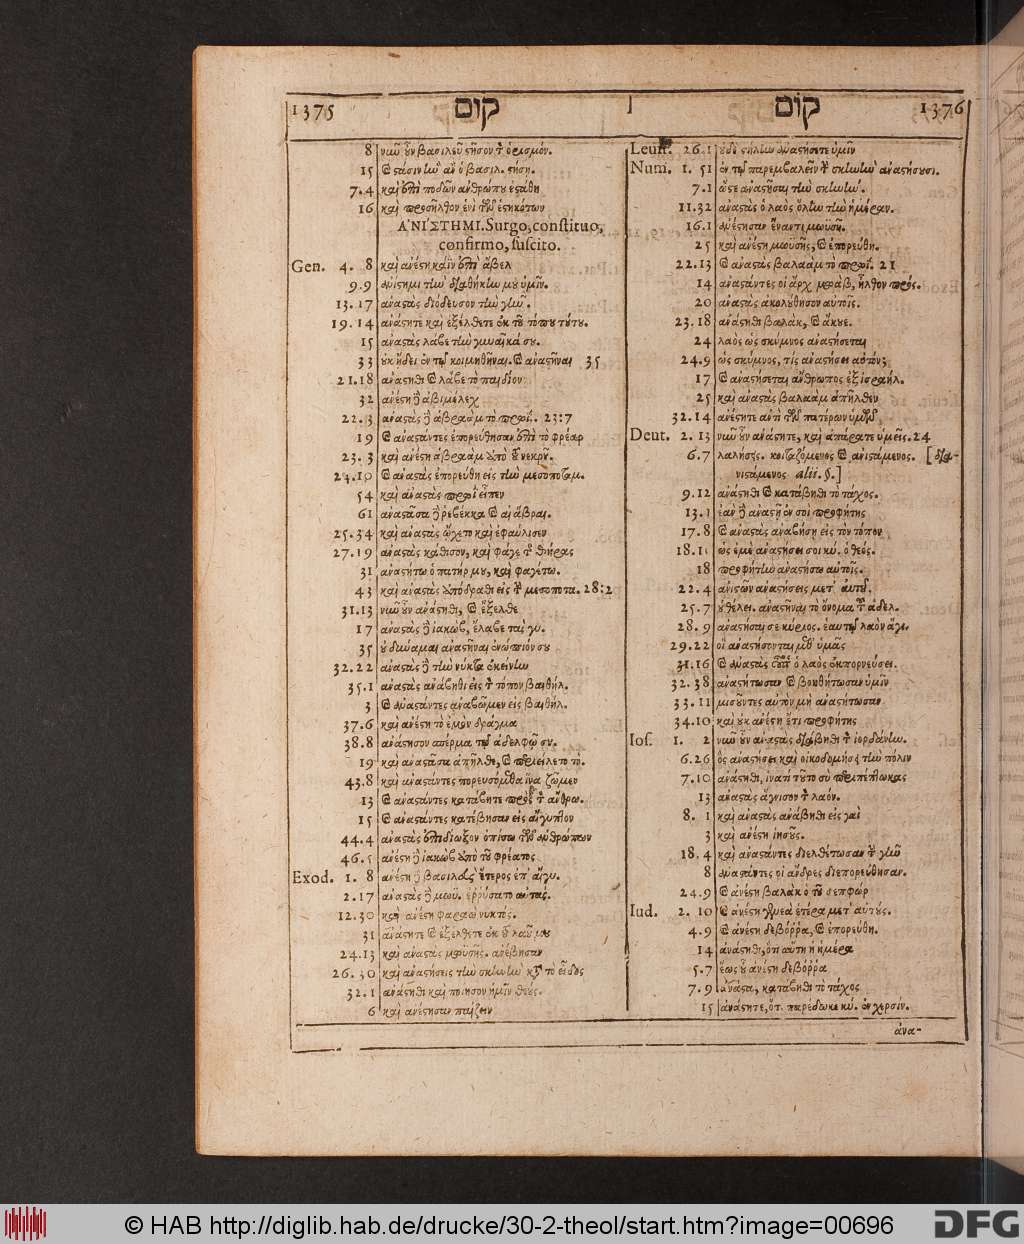 1375 קום
קום 1376
8 νιῦ οὖν βασιλεῦ στῆσον τ ὁρισμόν.
15 ὁ βασιλ. στήσῃ.
7.4 καὶ ἐπὶ ποδῶν ἀνθρώπου ἐστάθη
16 καὶ προσῆλθον ἑνὶ τῶν ἑστηκότων
ΑΝΙΣΤΗΜΙ. Surgo, constituo,
confirmo, suscito.
Gen. 4. 8 καὶ ἀνέστη καὶν ἐπὶ ἄβελ
9.9 ἀνίστημι τὴν διαθήκην μου ὑμῖν.
13.17 ἀναστὰς διόδευσον τὴν γῆν.
19.14 ἀνάστητε καὶ ἐξέλθετε ἐκ τοῦ τόπου τούτου.
15 ἀναστὰς λάβε τὴν γυναῖκά σου.
33 οὐκ ᾔδει ἐν τῷ κοιμηθῆναι καὶ ἀναστῆναι 35
21.18 ἀνάστηθι καὶ λάβε τὸ παιδίον
32 ἀνέστη δὲ ἀβιμέλεχ
22.3 ἀναστὰς δὲ ἀβραὰμ τὸ πρωῒ. 23:7
19 καὶ ἀναστάντες ἐπορεύθησαν ἐπὶ τὸ φρέαρ
23.3 καὶ ἀνέστη ἀβραὰμ ἀπὸ τοῦ νεκροῦ.
24.10 καὶ ἀναστὰς ἐπορεύθη εἰς τὴν μεσοποταμ.
54 καὶ ἀναστὰς πρωῒ εἶπεν
61 ἀναστᾶσα δὲ ῥεβέκκα καὶ αἱ ἅβραι.
25.34 καὶ ἀναστὰς ᾤχετο καὶ ἐφαύλισεν
27.19 ἀναστὰς κάθισον, καὶ φάγε τ θήρας
31 ἀναστήτω ὁ πατήρ μου, καὶ φαγέτω.
43 καὶ ἀναστὰς ἀπόδραθι εἰς τ μεσοποτα. 28:2
31.13 νῦν οὖν ἀνάστηθι, καὶ ἔξελθε
17 ἀναστὰς δὲ ἰακὼβ, ἔλαβε τὰς γυ.
35 οὐ δύναμαι ἀναστῆναι ἐνώπιόν σου
32.22 ἀναστὰς δὲ τὴν νύκτα ἐκείνην
35.1 ἀναστὰς ἀνάβηθι εἰς τ τόπον βαιθήλ.
3 καὶ ἀναστάντες ἀναβῶμεν εἰς βαιθήλ.
37.6 καὶ ἀνέστη τὸ ἐμὸν δράγμα
38.8 ἀνάστησον σπέρμα τῷ ἀδελφῷ σου.
19 καὶ ἀναστᾶσα ἀπῆλθε, καὶ περιείλετο τὸ.
43.8 καὶ ἀναστάντες πορευσόμεθα ἵνα ζῶμεν
13 καὶ ἀναστάντες κατάβητε πρὸς τ ἄνθρω.
15 καὶ ἀναστάντες κατέβησαν εἰς αἴγυπτον
44.4 ἀναστὰς ἐπιδίωξον ὀπίσω τῶν ἀνθρώπων
46.5 ἀνέστη δὲ ἰακὼβ ἀπὸ τοῦ φρέατος
Exod. 1. 8 ἀνέστη δὲ βασιλεὺς ἕτερος ἐπ' αἴγυ.
2.17 ἀναστὰς δὲ μωϋ. ἐῤῥύσατο αὐτάς.
12.30 καὶ ἀνέστη φαραὼ νυκτός.
31 ἀνάστητε καὶ ἐξέλθετε ἐκ τοῦ λαοῦ μου
24.13 καὶ ἀναστὰς μωϋσῆς. ἀνέβησαν
26.30 καὶ ἀναστήσεις τὴν σκηνὴν κατὰ τὸ εἶδος
32.1 ἀνάστηθι καὶ ποίησον ἡμῖν θεούς.
6 καὶ ἀνέστησαν παίζειν
Leuit. 26.1 οὐδὲ στήλην ἀναστήσετε ὑμῖν
Num. 1. 51 ἐν τῷ παρεμβαλεῖν τ σκηνὴν ἀναστήσουσι.
7.1 ὥστε ἀναστῆσαι τὴν σκηνήν.
11.32 ἀναστὰς ὁ λαὸς ὅλην τὴν ἡμέραν.
16.1 ἀνέστησαν ἔναντι μωϋσῆ.
25 καὶ ἀνέστη μωϋσῆς, καὶ ἐπορεύθη.
22.13 καὶ ἀναστὰς βαλαὰμ τὸ πρωῒ. 21
14 ἀναστάντες οἱ ἄρχ μωὰβ, ἦλθον πρός.
20 ἀναστὰς ἀκολούθησον αὐτοῖς.
23.18 ἀνάστηθι βαλὰκ, καὶ ἄκουε.
24 λαὸς ὡς σκύμνος ἀναστήσεται
24.9 ὡς σκύμνος, τίς ἀναστήσει αὐτόν;
17 καὶ ἀναστήσεται ἄνθρωπος ἐξ ἰσραήλ.
25 καὶ ἀναστὰς βαλαὰμ ἀπῆλθεν
32.14 ἀνέστητε ἀντὶ τῶν πατέρων ὑμῶν
Deut. 2. 13 νῦν οὖν ἀνάστητε, καὶ ἀπάρατε ὑμεῖς. 24
6.7 λαλήσεις. κοιταζόμενος καὶ ἀνιστάμενος. [δια-
νιστάμενος alii. §.]
9.12 ἀνάστηθι καὶ κατάβηθι τὸ τάχος.
13.1 ἐὰν δὲ ἀναστῇ ἐν σοὶ προφήτης
17.8 καὶ ἀναστὰς ἀναβήσῃ εἰς τὸν τόπον
18.15 ὡς ἐμὲ ἀναστήσει σοι κύ. ὁ θεός.
18 προφήτην ἀναστήσω αὐτοῖς.
22.4 ἀνιστῶν ἀναστήσεις μετ' αὐτοῦ.
25.7 οὐ θέλει. ἀναστῆναι τὸ ὄνομα τ ἀδελ.
28.9 ἀναστήσαι σε κύριος. ἑαυτῷ λαὸν ἅγι.
29.22 οἳ ἀναστήσονται μεθ' ὑμᾶς
31.16 καὶ ἀναστὰς οὗτος ὁ λαὸς ἐκπορνεύσει.
32.38 ἀναστήτωσαν καὶ βοηθήτωσαν ὑμῖν
33.11 μισοῦντες αὐτὸν μὴ ἀναστήτωσαν
34.10 καὶ οὐκ ἀνέστη ἔτι προφήτης
Ios. 1. 2 νῦν οὖν ἀναστὰς διάβηθι τ ἰορδάνην.
6.26 ὃς ἀναστήσει καὶ οἰκοδομήσει τὴν πόλιν
7.10 ἀνάστηθι, ἱνατί τοῦτο σὺ πέπτωκας
13 ἀναστὰς ἁγίασον τ λαόν.
8. 1 καὶ ἀναστὰς ἀνάβηθι εἰς γαὶ
3 καὶ ἀνέστη ἰησοῦς.
18.4 καὶ ἀναστάντες διελθέτωσαν τ γῆν
8 ἀναστάντες οἱ ἄνδρες διεπορεύθησαν.
24.9 καὶ ἀνέστη βαλὰκ ὁ τοῦ σεπφὼρ
Iud. 2. 10 καὶ ἀνέστη γενεὰ ἑτέρα μετ' αὐτούς.
4.9 καὶ ἀνέστη δεβόῤῥα, καὶ ἐπορεύθη.
14 ἀνάστηθι, ὅτι αὕτη ἡ ἡμέρα
5.7 ἕως οὗ ἀνέστη δεβόῤῥα
7.9 ἀνάστα, κατάβηθι τὸ τάχος
15 ἀνάστητε, ὅτι παρέδωκε κύ. ἐν χερσίν.
ἀνα-
© HAB http://diglib.hab.de/drucke/30-2-theol/start.htm?image=00696
DFG